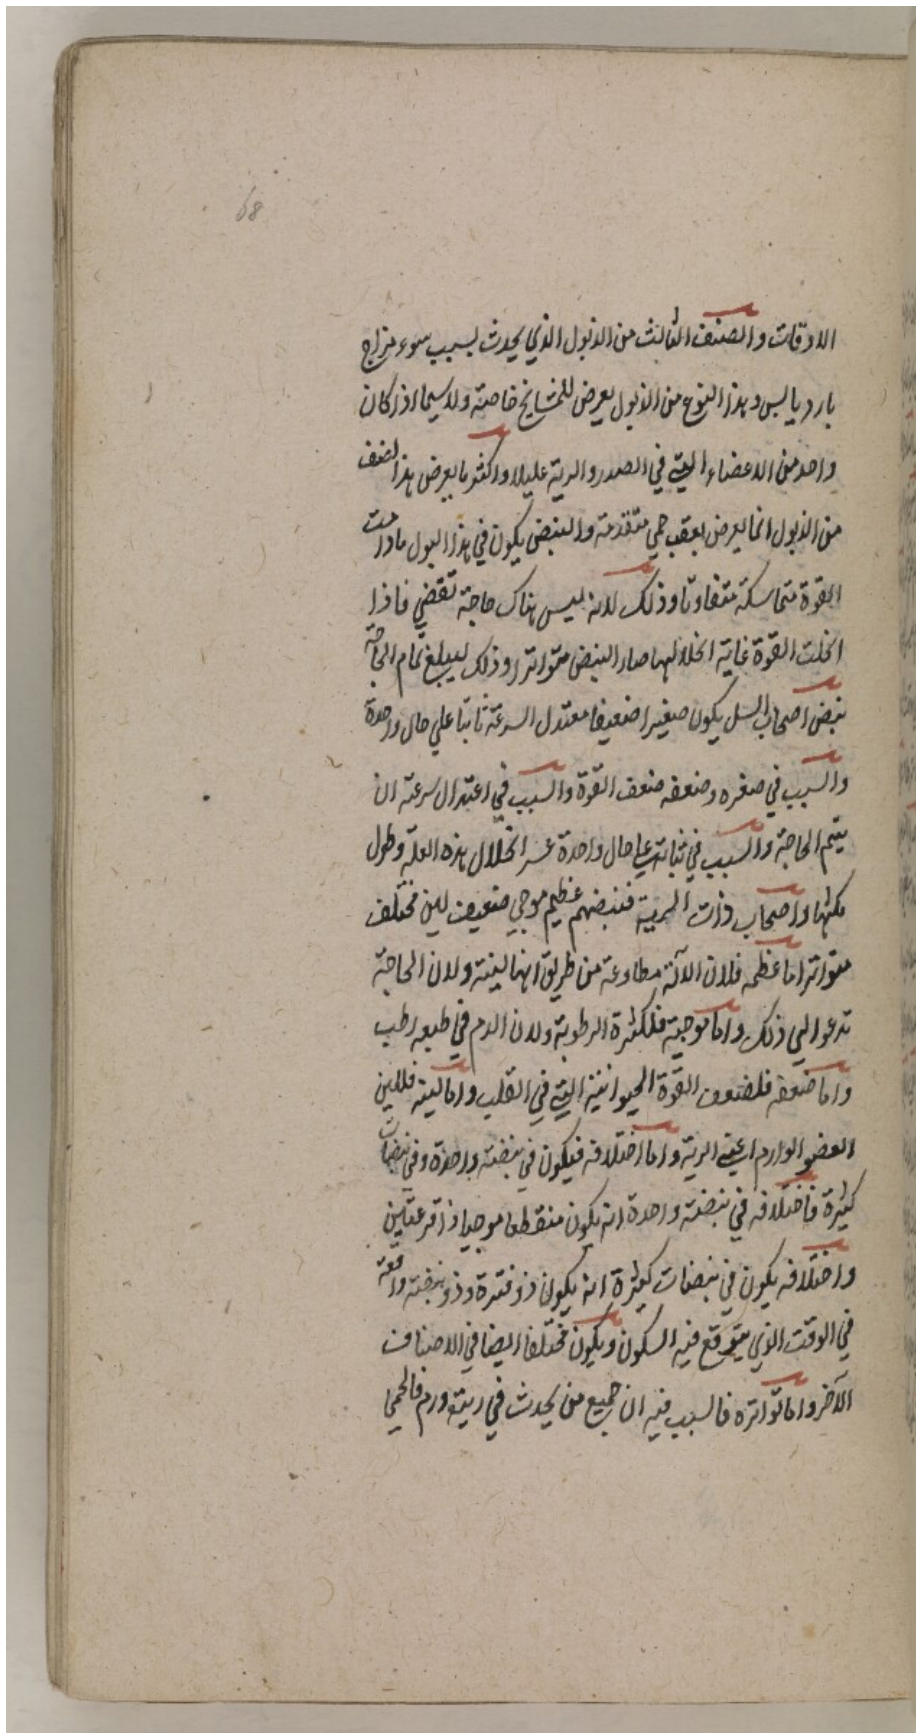 68
الاوقات والصنف الثالث من الذبول الذي يحدث بسبب سوء مزاج
بارد يابس وهذا النوع من الذبول يعرض للمشايخ خاصة ولا سيما اذا كان
واحد من الاعضاء التي في الصدر والرية عليلا واكثر ما يعرض هذا الصنف
من الذبول انما يعرض بعقب حمي متقدمة والنبض يكون في هذا البول ما دامت
القوة متماسكة متفاوتا وذلك لانه ليس هناك حاجة تقضي فاذا
انحلت القوة غاية انحلالها صار النبض متواترا وذلك ليبلغ تمام الحاجة
نبض اصحاب السل يكون صغيرا ضعيفا معتدل السرعة ثابتا علي حال واحدة
والسبب في صغره وضعفه ضعف القوة والسبب في اعتدال سرعته ان
يتم الحاجة والسبب في ثباته علي حال واحدة عسر انحلال هذه العلة وطول
مكثها واصحاب ذات الرية فنبضهم عظيم موجي ضعيف لين مختلف
متواتر اما عظمه فلان الآلة مطاوعة من طريق انها لينة ولان الحاجة
تدعو الي ذلك واما موجية فلكثرة الرطوبة ولان الدم في طبعه رطب
واما ضعفه فلضعف القوة الحيوانية التي في القلب واما لينه فللين
العضو الوارم اعني الرية واما اختلافه فيكون في نبضة واحدة وفي نبضات
كثيرة فاختلافه في نبضة واحدة انه يكون منقطعا موجيا وذا قرعتين
واختلافه يكون في نبضات كثيرة انه يكون ذو فترة وذو نبضة واقعة
في الوقت الذي يتوقع فيه السكون ويكون مختلفا ايضا في الاصناف
الآخر واما تواتره فالسبب فيه ان جميع من يحدث في ريته ورم فالحمي